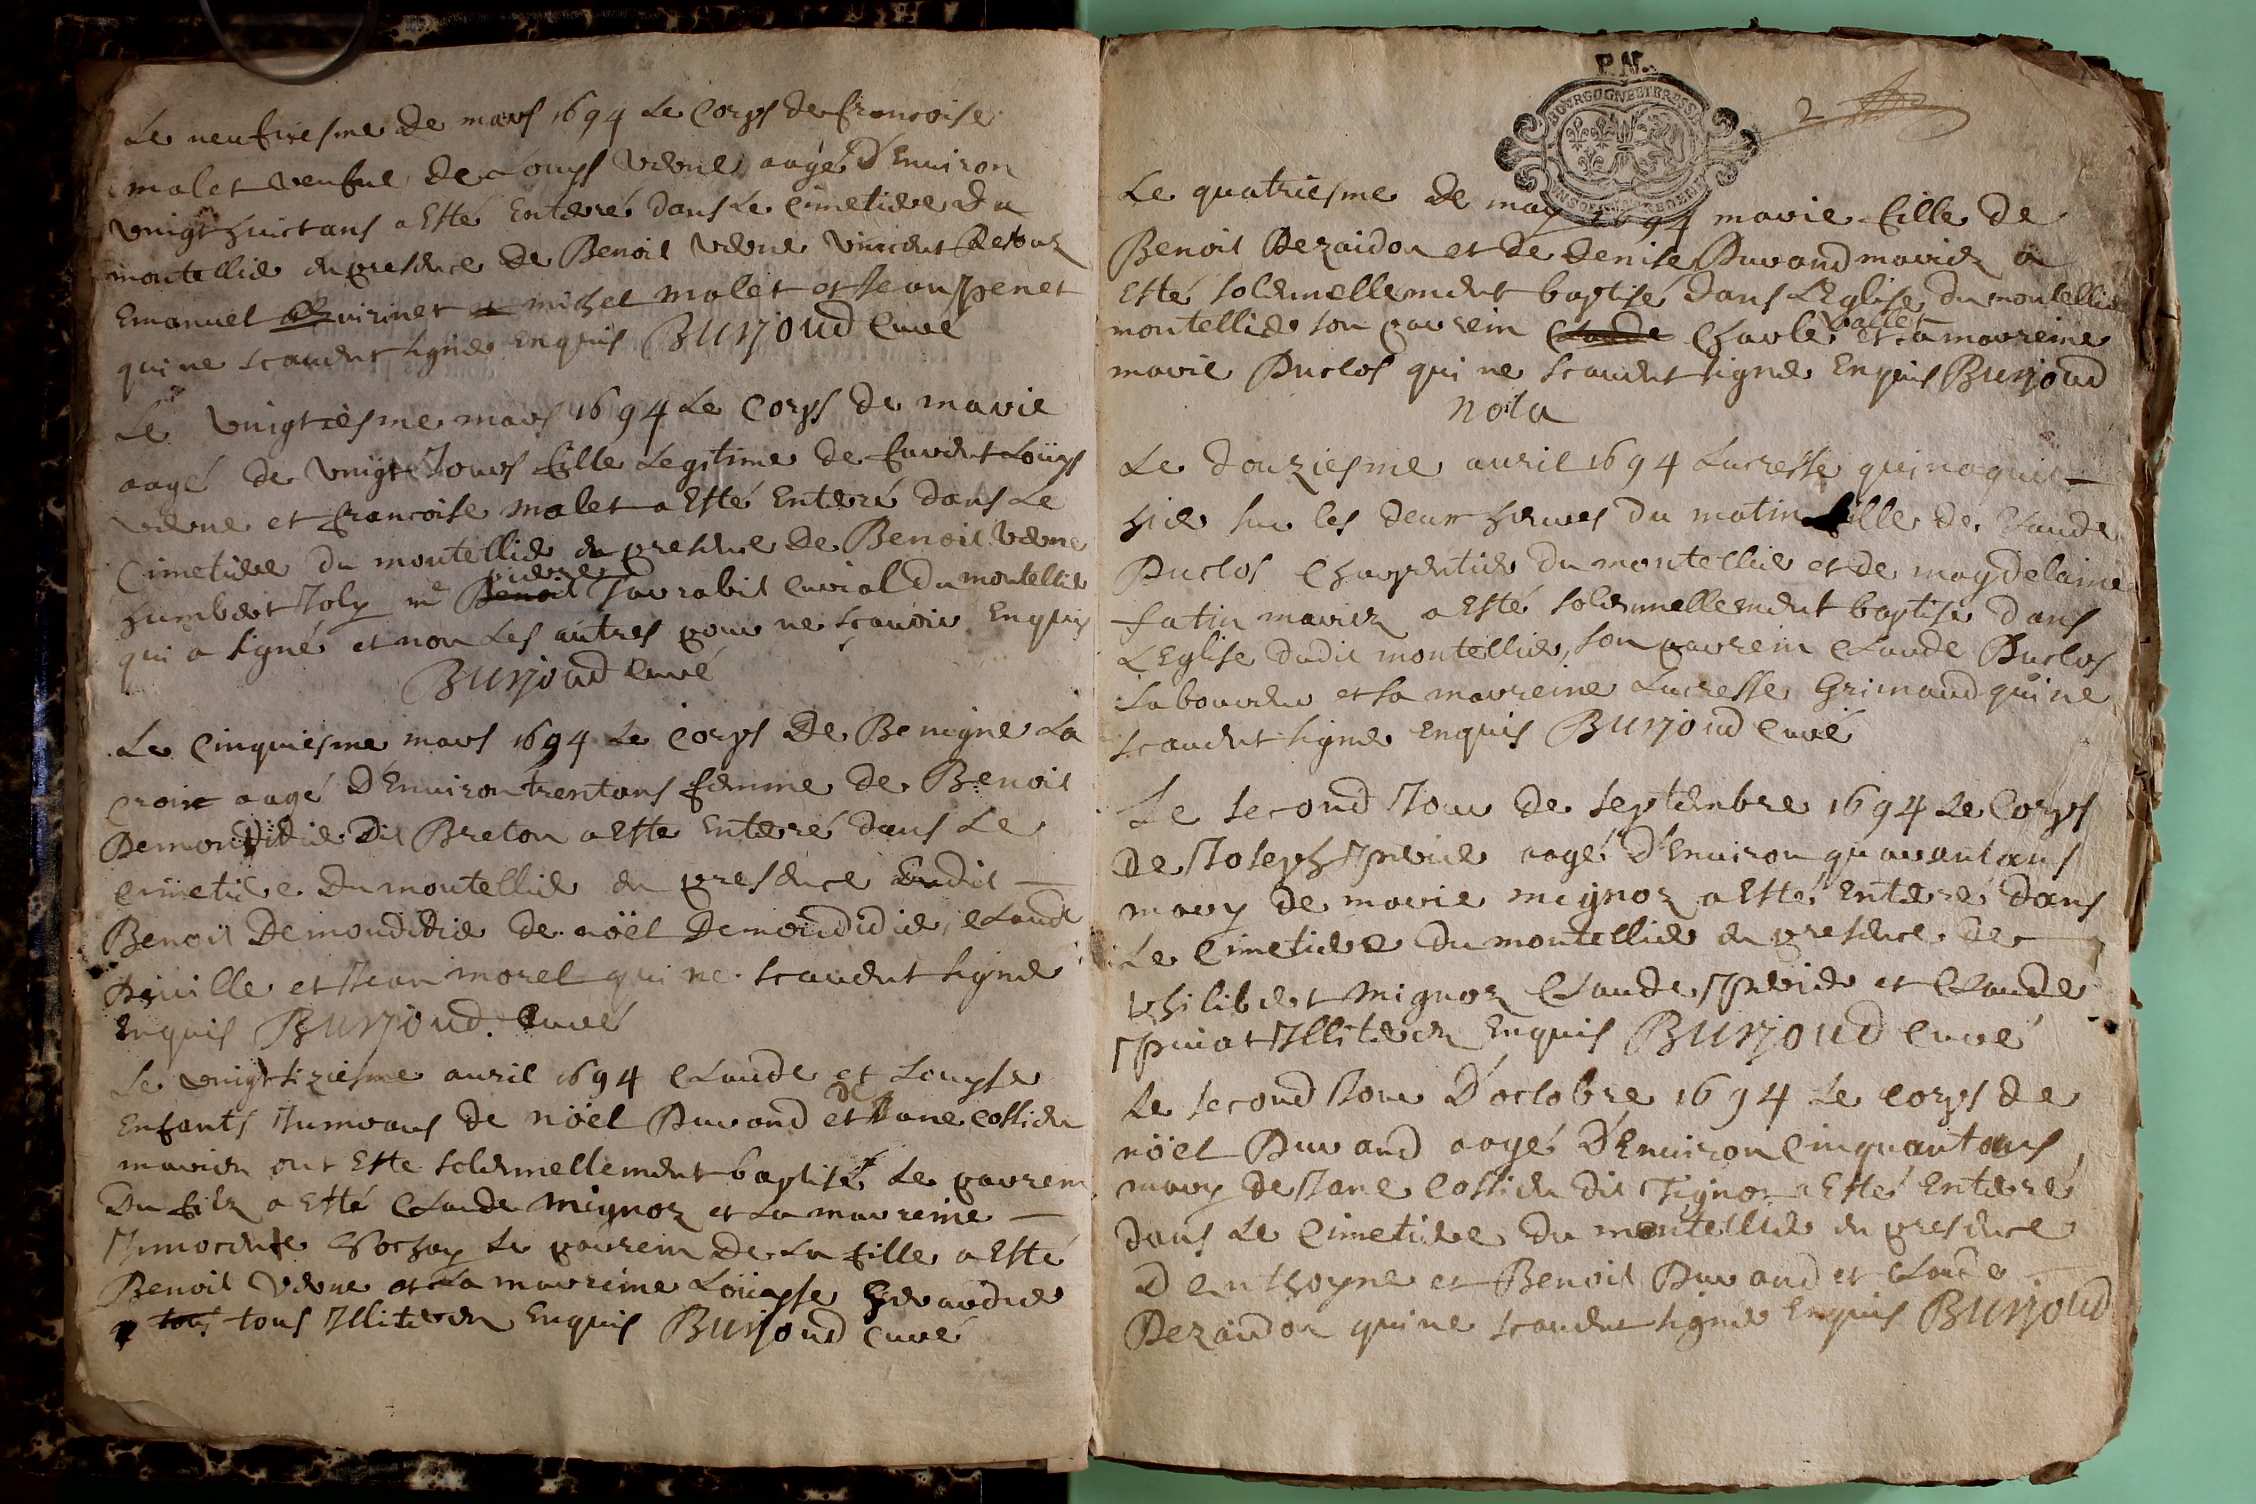 Le neufviesme de mars 1694 Le Corps de francoise
malet veufve de Louys verne aagé d'Environ
vingt huict ans a Esté Enteré dans Le Cimetiere du
montellier en presence de Benoit verne vincent
Emanuel michel malet et Jean penet
qui ne scauent signer Enquis Burjoud Curé
Le vingtiesme mars 1694 Le Corps de marie
aagé de vingt Jours fille Legitime de Louys
verne et francoise malet a Esté Enteré dans Le
Cimetiere du montellier en presence de Benoit verne
pierre
humbert Joly me Benoit Curial du montellier
qui a signé et non Les autres pour ne scavoir Enquis
Burjoud Curé
Le Cinquiesme mars 1694 Le Corps de Benigne La
Croix aagé d'Environ trentans femme de Benoit
Demondidier dit Breton a Esté Enteré dans Le
Cimetiere du montellier en presence dudit
Benoit Demondidier de noël Demondidier, Claude
et Jean morel qui ne scauent signer
Enquis Burjoud Curé
Le vingt siziesme auril 1694 Claude et Louyse
de
Enfants Jumeaus de noël Durand et Jane Cottier
mariez ont Esté solemnellement baptisé Le parrein
Du filz a Esté Claude mignoz et La marreine
Innocente Le parrein de La fille a Esté
Benoit verne et La marreine Louyse
tous tous Illiterez Enquis Burjoud Curé
P.N.
BOURGOGNE ET BRESSE
2
Le quatriesme de may 1694 marie fille de
Benoit Dezaidon et de denise Durand mariez a
Esté solemnellement baptisé dans L'Eglise du montellier
vallet
montellier son parrein Claude Charle et sa marreine
marie Duclos qui ne scauent signer Enquis Burjoud
nota
Le douziesme auril 1694 Lucresse qui naquit
hier sur les deux heures du matin fille de Claude
Duclos Charpentier du montellier et de magdelaine
fatin mariez a Esté solemnellement baptisé dans
L'Eglise dudit montellier, son parrein Claude Duclos
Laboureur et sa marreine Lucresse Grimaud qui ne
scauent signer Enquis Burjoud Curé
Le second Jour de septembre 1694 Le Corps
de Joseph aagé d'Environ quarantans
mary de marie mignoz a Esté Enteré dans
Le Cimetiere du montellier en presence de
philibert mignoz Claude et Claude
Illiterez Enquis Burjoud Curé
Le second Jour d'octobre 1694 Le Corps de
noël Durand aagé d'Environ Cinquantans
mary de Jane Cottier dit a Esté Enteré
dans Le Cimetiere du montellier en presence
d'enthoyne et Benoit Durand et Claude
Dezaidon qui ne scauent signer Enquis Burjoud